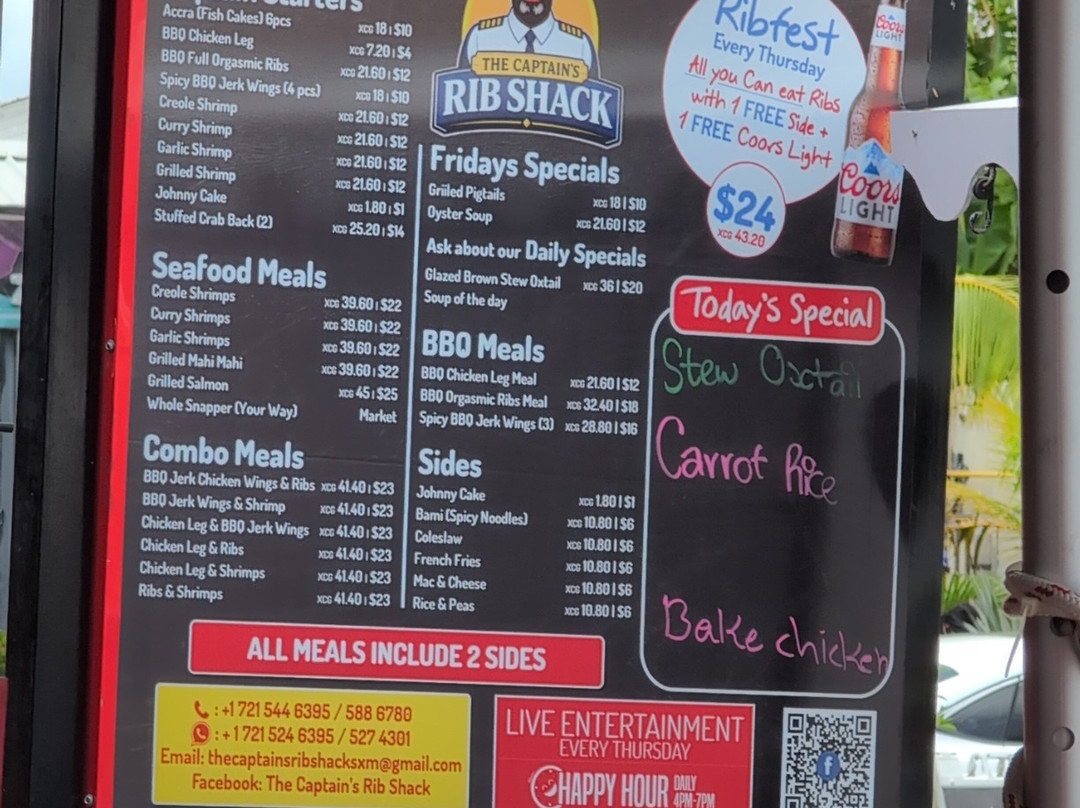 Starters
Accra (Fish Cakes) 6pcs XCG 18 | $10
BBQ Chicken Leg XCG 7.20 | $4
BBQ Full Orgasmic Ribs XCG 21.60 | $12
Spicy BBQ Jerk Wings (4 pcs) XCG 18 | $10
Creole Shrimp XCG 21.60 | $12
Curry Shrimp XCG 21.60 | $12
Garlic Shrimp XCG 21.60 | $12
Grilled Shrimp XCG 21.60 | $12
Johnny Cake XCG 1.80 | $1
Stuffed Crab Back (2) XCG 25.20 | $14
Seafood Meals
Creole Shrimps XCG 39.60 | $22
Curry Shrimps XCG 39.60 | $22
Garlic Shrimps XCG 39.60 | $22
Grilled Mahi Mahi XCG 39.60 | $22
Grilled Salmon XCG 45 | $25
Whole Snapper (Your Way) Market
Combo Meals
BBQ Jerk Chicken Wings & Ribs XCG 41.40 | $23
BBQ Jerk Wings & Shrimp XCG 41.40 | $23
Chicken Leg & BBQ Jerk Wings XCG 41.40 | $23
Chicken Leg & Ribs XCG 41.40 | $23
Chicken Leg & Shrimps XCG 41.40 | $23
Ribs & Shrimps XCG 41.40 | $23
THE CAPTAIN'S
RIB SHACK
Fridays Specials
Grilled Pigtails XCG 18 | $10
Oyster Soup XCG 21.60 | $12
Ask about our Daily Specials
Glazed Brown Stew Oxtail XCG 36 | $20
Soup of the day
BBQ Meals
BBQ Chicken Leg Meal XCG 21.60 | $12
BBQ Orgasmic Ribs Meal XCG 32.40 | $18
Spicy BBQ Jerk Wings (3) XCG 28.80 | $16
Sides
Johnny Cake XCG 1.80 | $1
Bami (Spicy Noodles) XCG 10.80 | $6
Coleslaw XCG 10.80 | $6
French Fries XCG 10.80 | $6
Mac & Cheese XCG 10.80 | $6
Rice & Peas XCG 10.80 | $6
Ribfest
Every Thursday
All you Can eat Ribs
with 1 FREE Side +
1 FREE Coors Light
$24
XCG 43.20
Coors
LIGHT
Coors
LIGHT
Today's Special
Stew Oxtail
Carrot Rice
Bake chicken
ALL MEALS INCLUDE 2 SIDES
: +1 721 544 6395 / 588 6780
: +1 721 524 6395 / 527 4301
Email: thecaptainsribshacksxm@gmail.com
Facebook: The Captain's Rib Shack
LIVE ENTERTAINMENT
EVERY THURSDAY
HAPPY HOUR DAILY
4PM-7PM